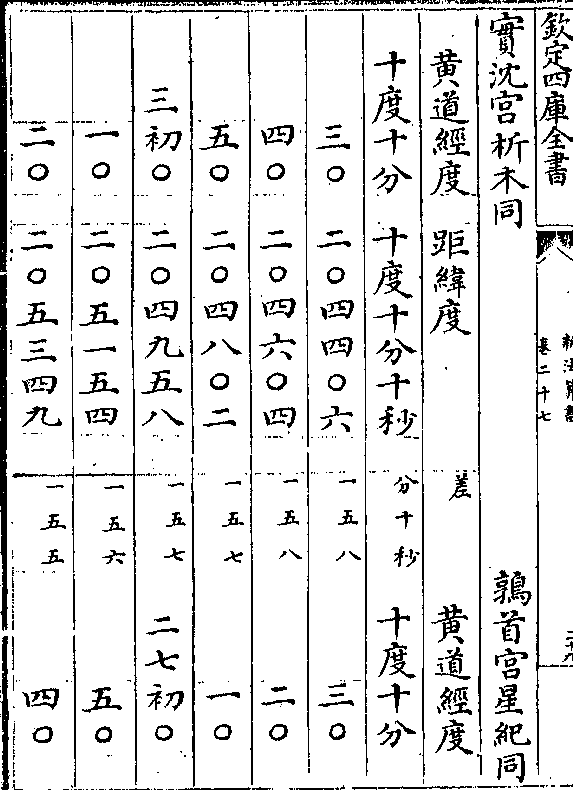 欽定四庫全書
新法算書
卷二十七
實沈宮析木同　鶉首宮星紀同
黃道經度　距緯度　差　黃道經度
十度十分　十度十分十秒　分十秒　十度十分
三〇　二〇四四〇六　一五八　三〇
四〇　二〇四六〇四　一五八　二〇
五〇　二〇四八〇二　一五七　一〇
三初〇　二〇四九五八　一五七　二七初〇
一〇　二〇五一五四　一五六　五〇
二〇　二〇五三四九　一五五　四〇